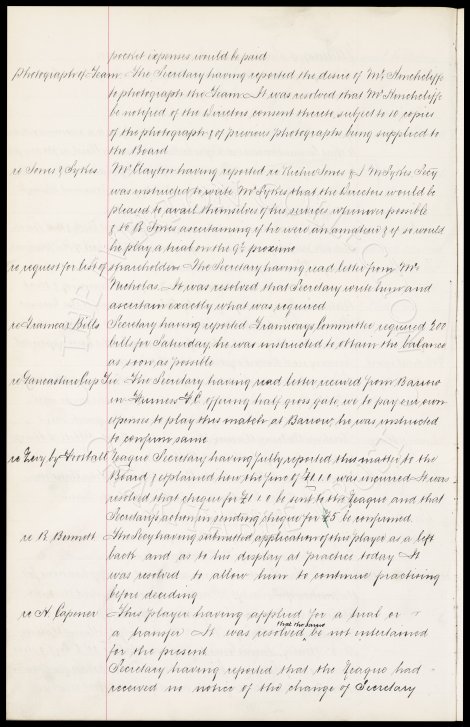 pocket expenses would be paid
Photograph of Team The Secretary having reported the desire of Mr
to photograph the Team. It was resolved that Mr
be notified of the Directors consent thereto subject to 12 copies
of the photograph & of previous photographs being supplied to
the Board
re Jones & Sykes Mr Clayton having reported re Richie Jones & J M Sykes Secy
was instructed to write Mr Sykes that the Directors would be
pleased to avail themselves of his services whenever possible
& to R Jones ascertaining if he were an amateur & if so would
he play a trial on the 9th proximo
re request for list of shareholders The Secretary having read letter from Mr
Nicholas. It was resolved that Secretary write him and
ascertain exactly what was required
re Tramcar Bills Secretary having reported Tramways Committee required 200
bills for Saturday, he was instructed to obtain the balance
as soon as possible
re Lancashire Cup Tie The Secretary having read letter received from Barrow
in Furness F.C. offering half gross gate, we to pay our own
expenses to play this match at Barrow, he was instructed
to confirm same
re Levy by Football League Secretary having fully reported this matter to the
Board & explained how the fine of £1.1.0 was incurred It was
resolved that cheque for £1.1.0 be sent to the League and that
Secretary's action in sending cheque for £5 be confirmed.
re R. Bennett The Secy having submitted application of this player as a left
back and as to his display at practice today It
was resolved to allow him to continue practising
before deciding
re A. Capener This player having applied for a trial or
a transfer It was resolved that the same be not entertained
for the present
Secretary having reported that the League had
received no notice of the change of Secretary